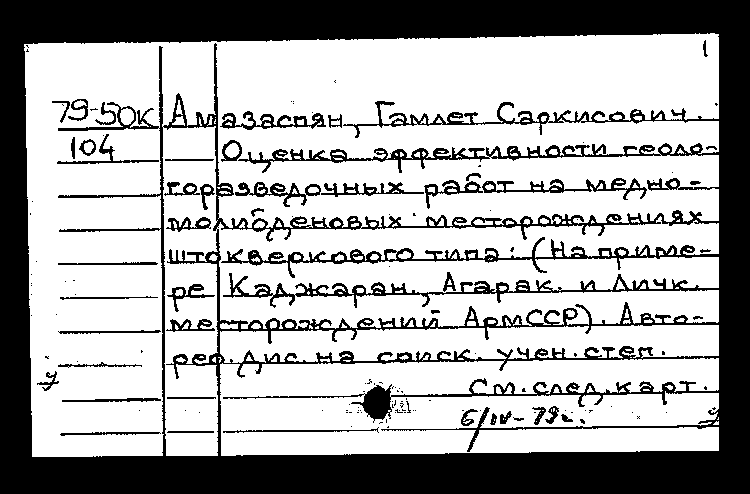 1
79-50к Амазаспян, Гамлет Саркисович.
104 Оценка эффективности геоло-
горазведочных работ на медно-
молибденовых месторождениях
штокверкового типа: (На приме-
ре Каджаран., Агарак. и Личк.
месторождений АрмССР). Авто-
реф. дис. на соиск. учен. степ.
у
См. след. карт.
6/IV-79г. у